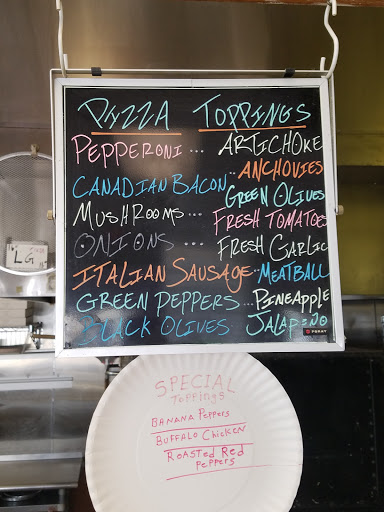 PIZZA TOPPINGS
PEPPERONI ... ARTICHOKE
.. ANCHOVIES
CANADIAN BACON GREEN OLIVES
MUSHROOMS ... FRESH TOMATOES
ONIONS ... FRESH GARLIC
ITALIAN SAUSAGE. MEATBALL
GREEN PEPPERS ... PINEAPPLE
BLACK OLIVES JALAPEÑO
LG
SPECIAL
TOPPINGS
BANANA PEPPERS
BUFFALO CHICKEN
ROASTED RED
PEPPERS